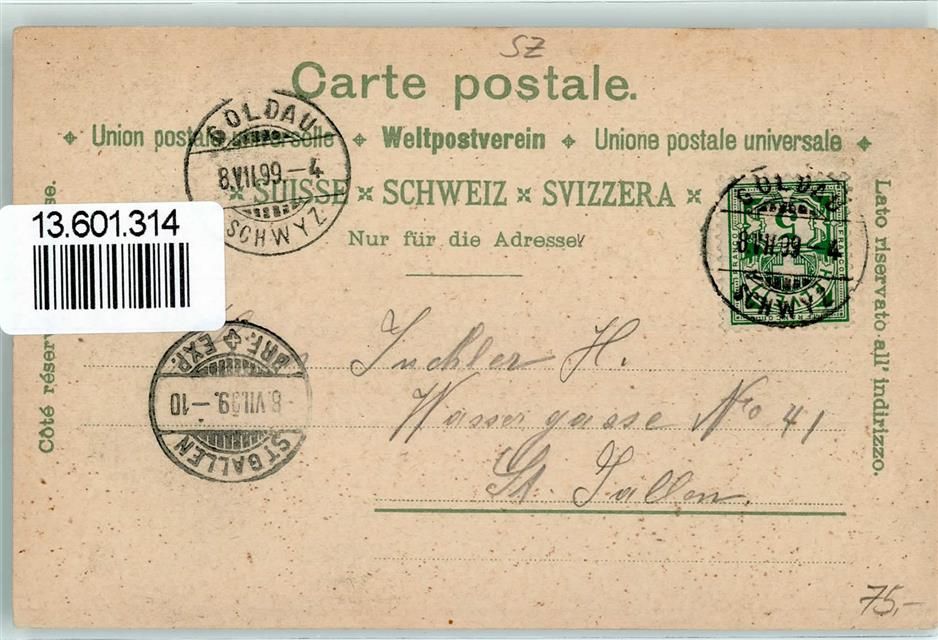 SZ
Carte postale.
Union postale universelle ✦ Weltpostverein ✦ Unione postale universale
SUISSE × SCHWEIZ × SVIZZERA
Nur für die Adresse
Côté réser se.
Lato riservato all' indirizzo.
13.601.314
GOLDAU
8.VII.99.–4
(SCHWYZ)
GOLDAU
8.VII.99.–4
5
FRANCO
BRF. EXP.
8.VII.99.–10
ST GALLEN
H.
Wassergasse No 41
St. Gallen.
75,-